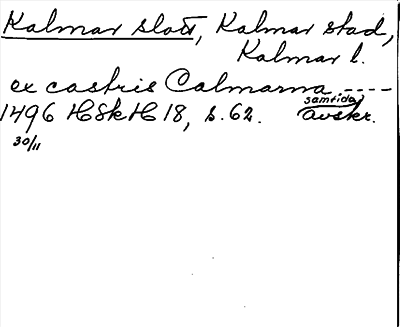 Kalmar slott, Kalmar stad,
Kalmar l.
ex castris Calmarna ----
samtida
1496 HSkH 18, s. 62. avskr.
30/11